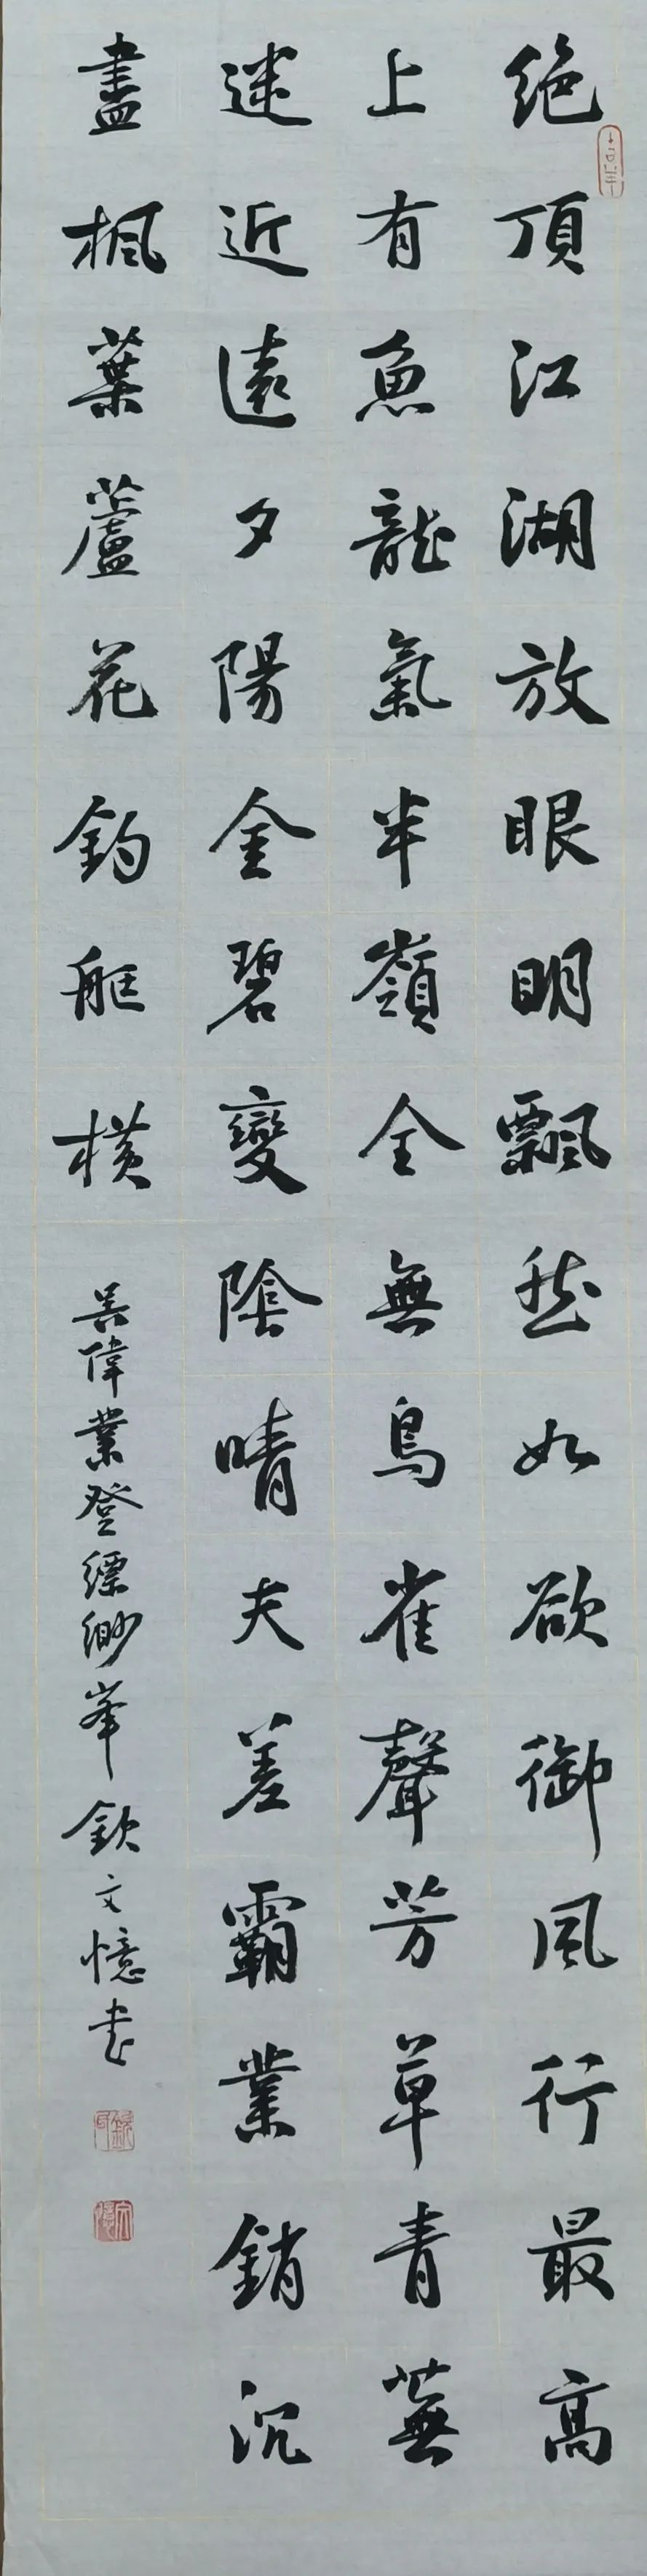 絶頂江湖放眼明飄然如欲御風行最高
上有魚龍氣半嶺全無鳥雀聲芳草青蕪
迷近遠夕陽金碧變陰晴夫差霸業銷沉
盡楓葉蘆花釣艇橫
吳偉業登縹緲峯 欽文憶書